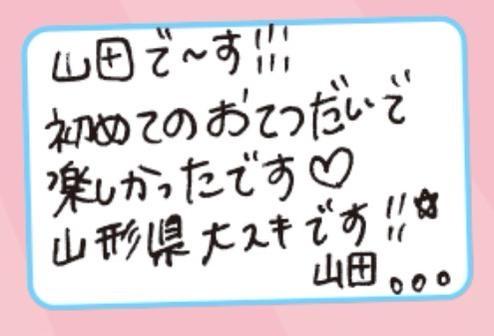 山田で〜す!!!
初めてのおてつだいで
楽しかったです♡
山形県大スキです!!☆
山田。。。